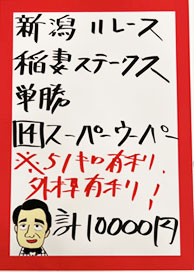 新潟11レース
稲妻ステークス
単勝
14スーパーウーパー
※51キロ有利、
外枠有利!
計10000円